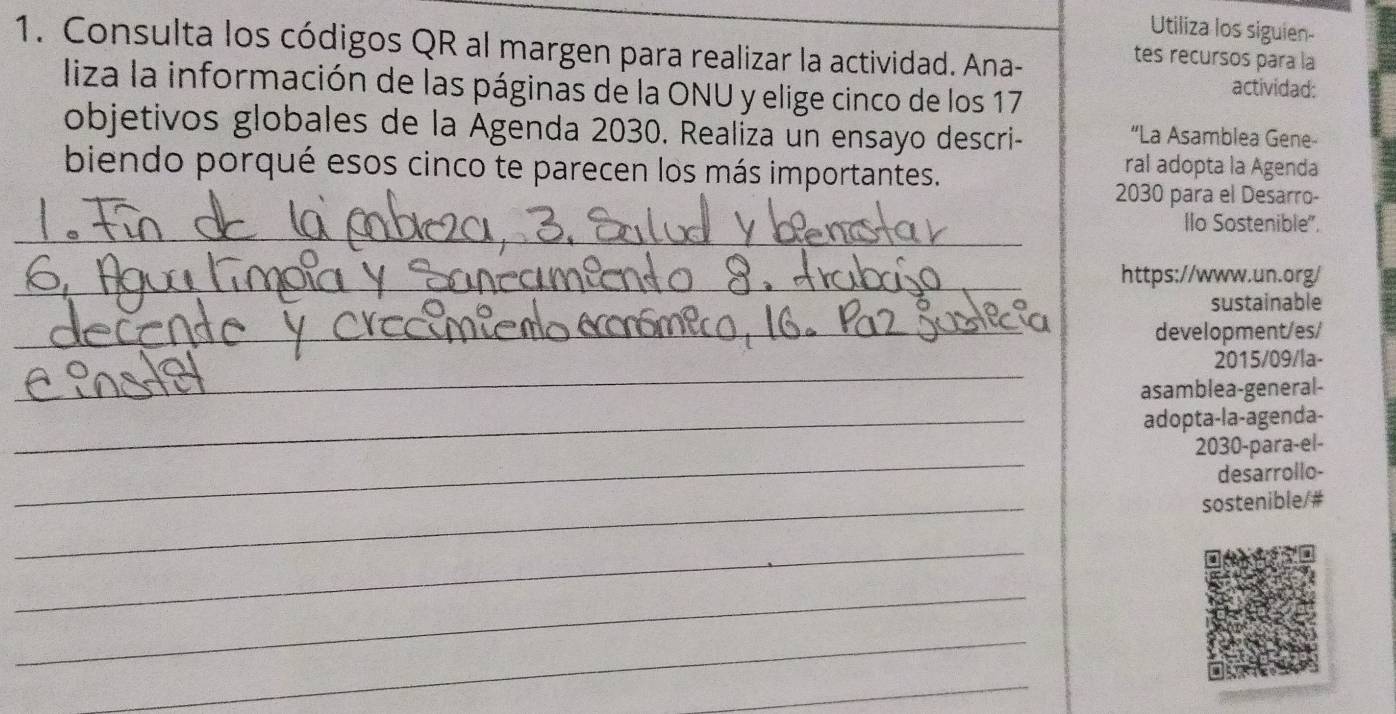 1. Consulta los códigos QR al margen para realizar la actividad. Ana-
liza la información de las páginas de la ONU y elige cinco de los 17
objetivos globales de la Agenda 2030. Realiza un ensayo descri-
biendo porqué esos cinco te parecen los más importantes.
1. Fin de la pobreza, 3. Salud y bienestar
6, Agua limpia y Saneamiento 8. trabajo
decente y crecimiento económico, 16. Paz justicia
e
Utiliza los siguien-
tes recursos para la
actividad:
"La Asamblea Gene-
ral adopta la Agenda
2030 para el Desarro-
llo Sostenible".
https://www.un.org/
sustainable
development/es/
2015/09/la-
asamblea-general-
adopta-la-agenda-
2030-para-el-
desarrollo-
sostenible/#